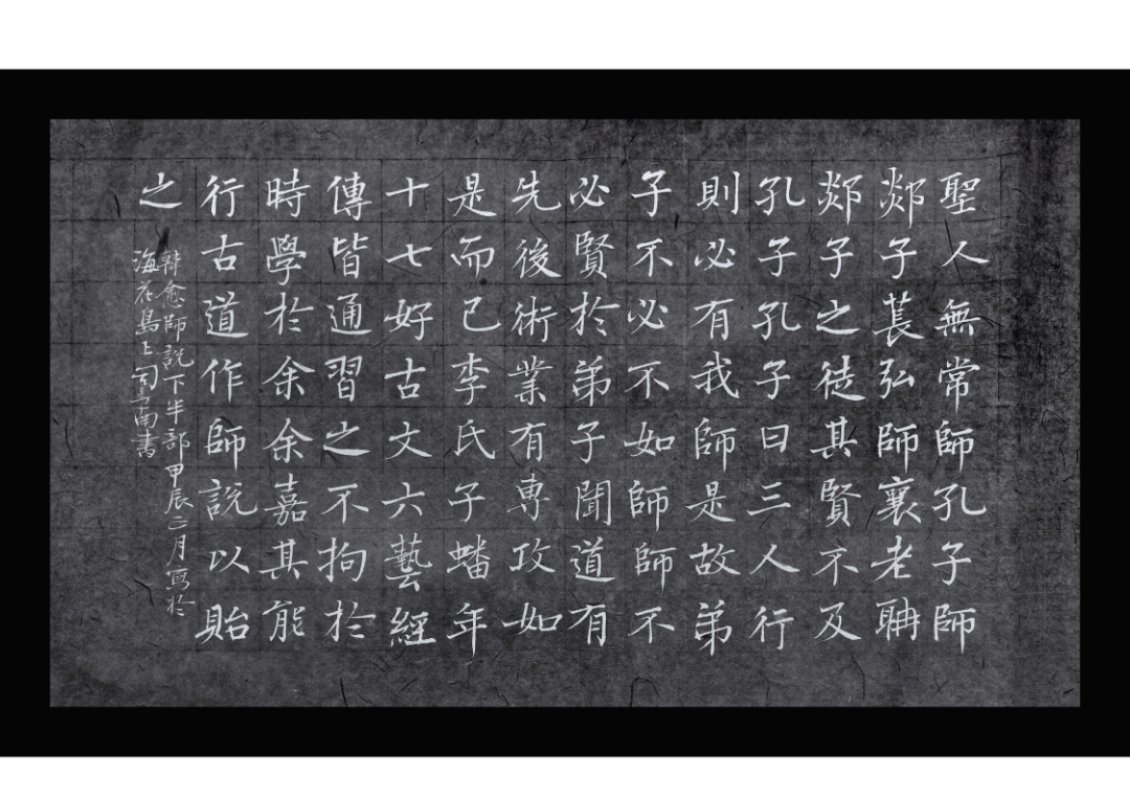 聖人無常師孔子師
郯子萇弘師襄老聃
郯子之徒其賢不及
孔子孔子曰三人行
則必有我師是故弟
子不必不如師師不
必賢於弟子聞道有
先後術業有專攻如
是而已李氏子蟠年
十七好古文六藝經
傳皆通習之不拘於
時學於余余嘉其能
行古道作師說以貽
之
韓愈師說下半部甲辰二月寫於
海花島上南書